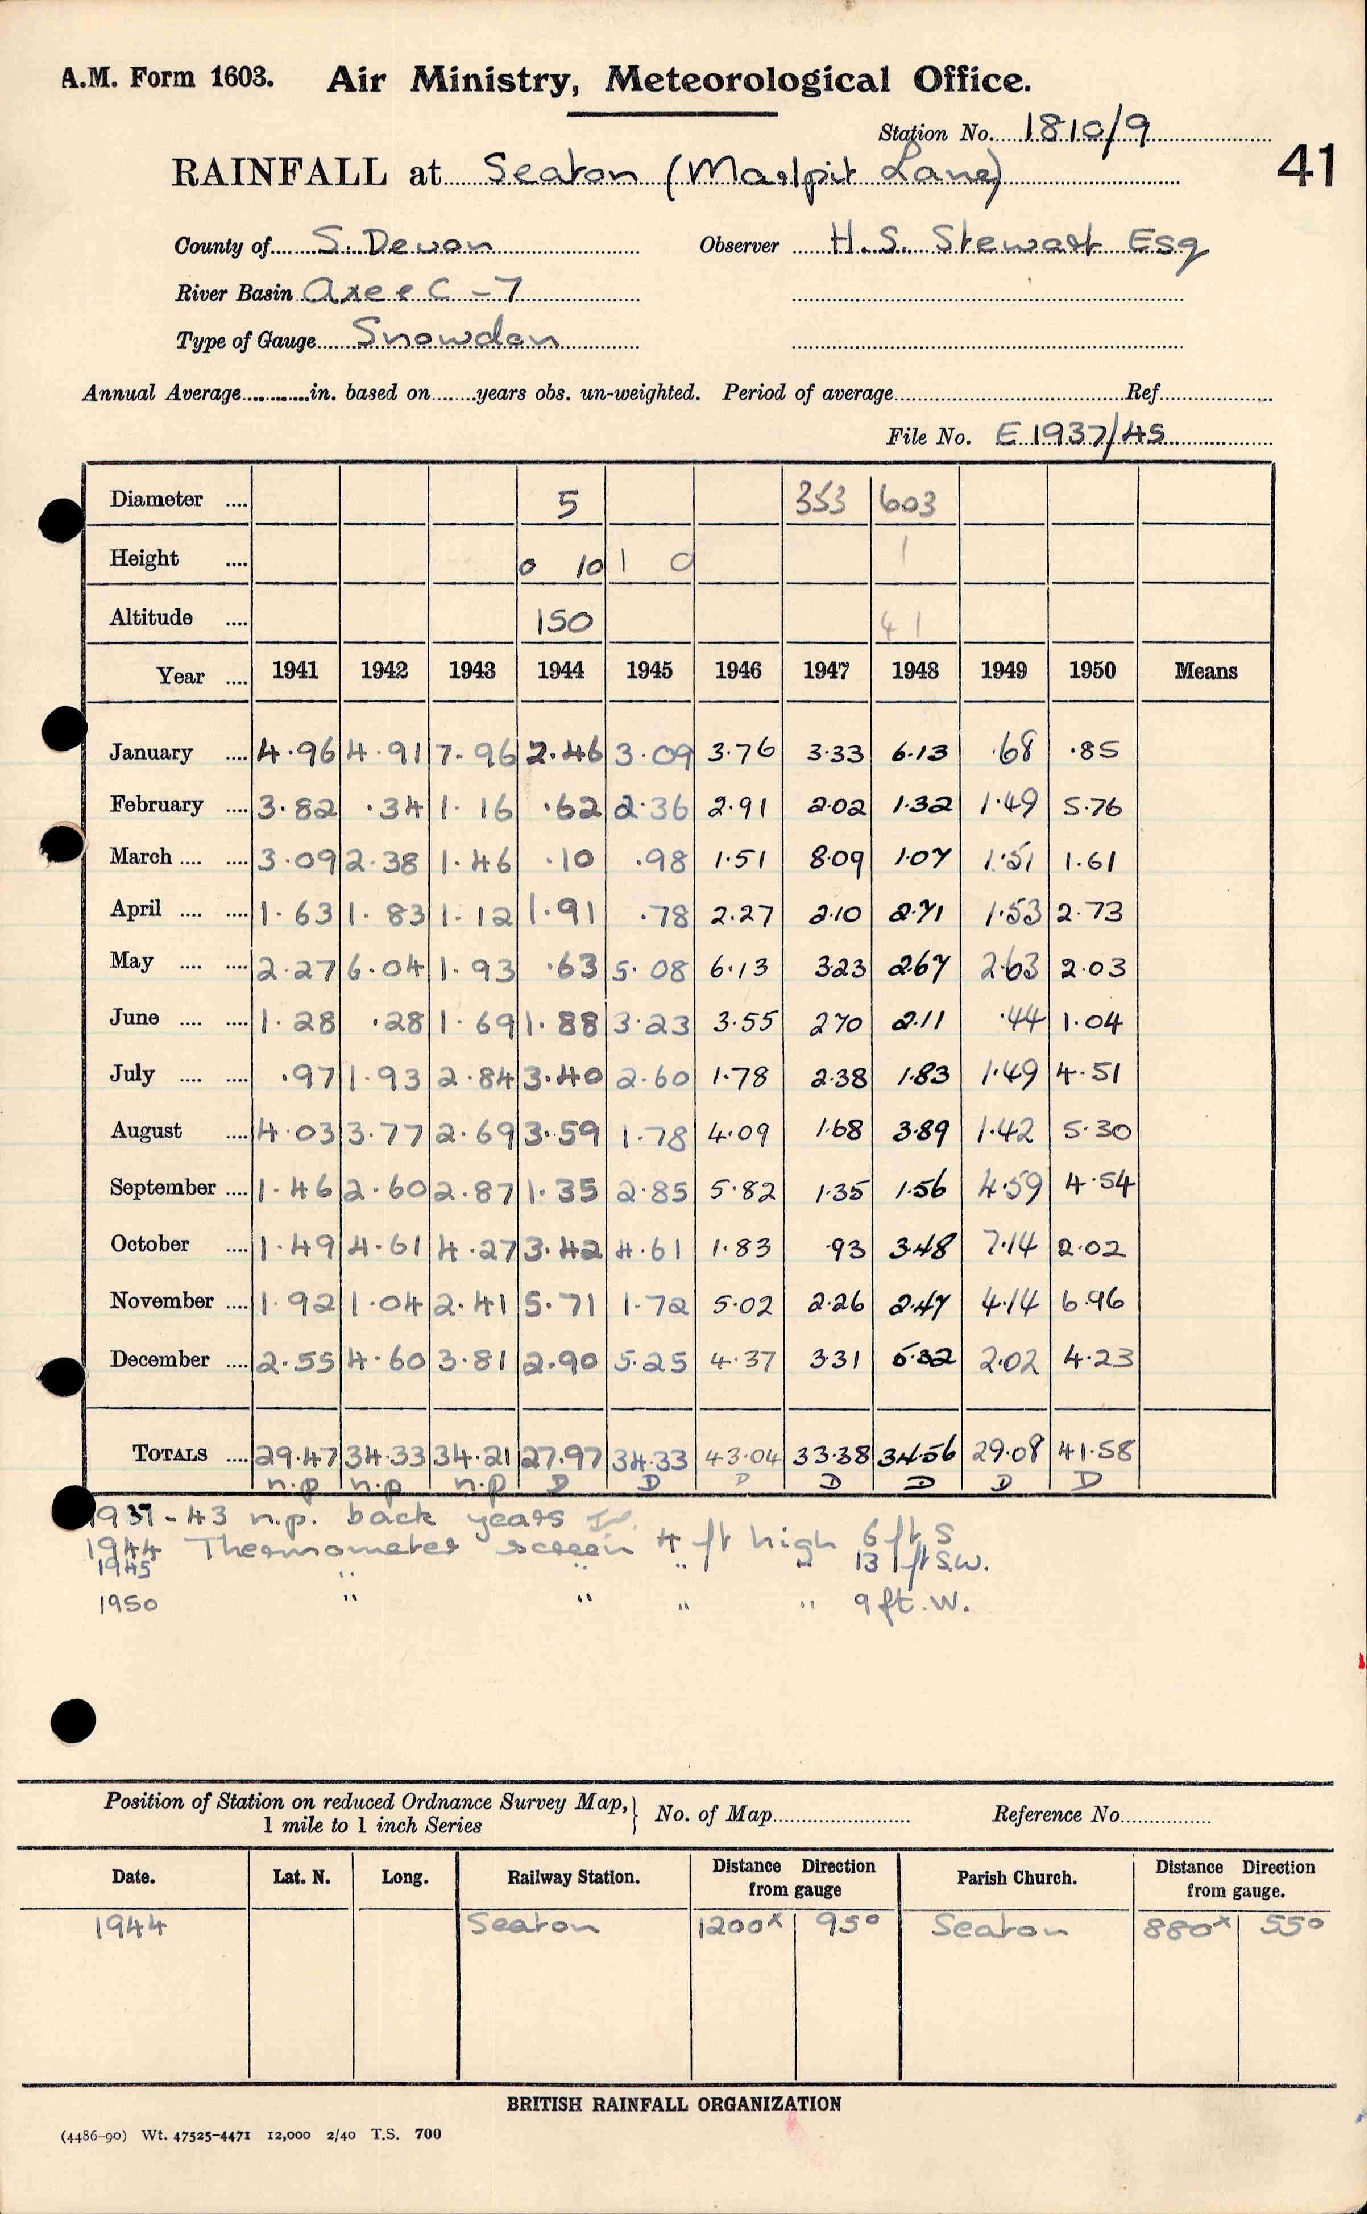 A.M. Form 1603. Air Ministry, Meteorological Office.
Station No. 1810/9
41
RAINFALL at Seaton (Marlpit Lane)
County of S. Devon Observer H. S. Stewart Esq
River Basin Axe & C - 7
Type of Gauge Snowdon
Annual Average in. based on years obs. un-weighted. Period of average Ref.
File No. E 1937/45
Diameter .... 5 353 603
Height .... 0 10 1 0 1
Altitude .... 150 41
Year .... 1941 1942 1943 1944 1945 1946 1947 1948 1949 1950 Means
January .... 4.96 4.91 7.96 2.46 3.09 3.76 3.33 6.13 .68 .85
February .... 3.82 .34 1.16 .62 2.36 2.91 2.02 1.32 1.49 5.76
March .... .... 3.09 2.38 1.46 .10 .98 1.51 8.09 1.07 1.51 1.61
April .... .... 1.63 1.83 1.12 1.91 .78 2.27 2.10 2.71 1.53 2.73
May .... .... 2.27 6.04 1.93 .63 5.08 6.13 3.23 2.67 2.63 2.03
June .... .... 1.28 .28 1.69 1.88 3.23 3.55 2.70 2.11 .44 1.04
July .... .... .97 1.93 2.84 3.40 2.60 1.78 2.38 1.83 1.49 4.51
August .... 4.03 3.77 2.69 3.59 1.78 4.09 1.68 3.89 1.42 5.30
September .... 1.46 2.60 2.87 1.35 2.85 5.82 1.35 1.56 4.59 4.54
October .... 1.49 4.61 4.27 3.42 4.61 1.83 .93 3.48 7.14 2.02
November .... 1.92 1.04 2.41 5.71 1.72 5.02 2.26 2.47 4.14 6.96
December .... 2.55 4.60 3.81 2.90 5.25 4.37 3.31 5.32 2.02 4.23
TOTALS .... 29.47 34.33 34.21 27.97 34.33 43.04 33.38 34.56 29.08 41.58
n.p n.p n.p D D D D D D D
1937-43 n.p. back years
1944 Thermometer screen 4 ft high 6 ft S
1945 " " " " 13 ft S.W.
1950 " " " " 9 ft. W.
Position of Station on reduced Ordnance Survey Map, 1 mile to 1 inch Series } No. of Map Reference No.
Date. Lat. N. Long. Railway Station. Distance Direction from gauge Parish Church. Distance Direction from gauge.
1944 Seaton 1200x 95° Seaton 880x 55°
BRITISH RAINFALL ORGANIZATION
(4486-90) Wt. 47525-4471 12,000 2/40 T.S. 700